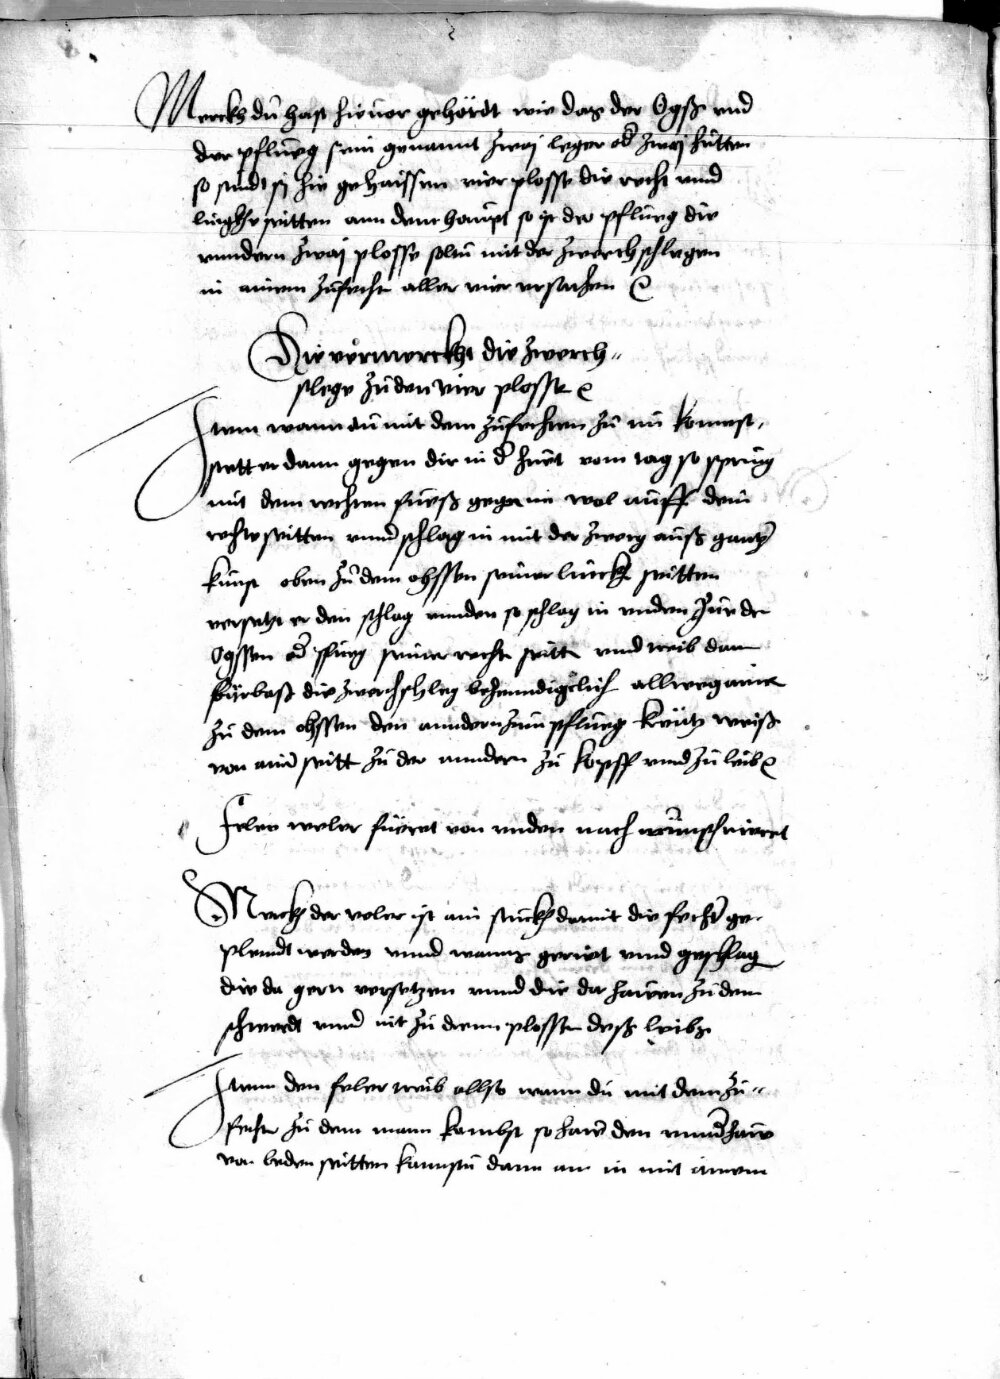 Merckh du hast hieuor gehördt wie das der Ogß vnd
der pflueg sein genannt zwaj leger od zwaj hutten
so sindt sj hie gehaissen vier plosse die recht vnnd
lingkhe seitten ann dem haupt so ist der pflueg die
vnndern zwaj plosse soltu mit der zwerchschlegen
in ainem zufecht aller vier ersuchen
Hie vermerckht die zwerch„
slege zu den vier plosse
Item wann du mit dem zufechten zu im komest,
stett er dann gegen dir in d huet vom tag so spring
mit dem rechten fueß gegen im wol auff dein
rechte seitten vnnd schlag in mit der zwerg auß gantz
kunst oben zu dem ochssen seiner linck seitten
versetzt er den schlag vnnden so schlag in vnden zue de
Ogssen od pflueg seiner recht seitt vnnd treib dann
fürbaß die zwerchschleg behenndigclich allweg ainen
zu dem ochssen den anndern zum pflueg kreutz weiß
von ainer seitt zu der anndern zu kopff vnnd zu leib
Feler weler füeret von vnden nach wunsch rieret
Merckh der veler ist ain stuckh damit die fechter ge„
plendt werden vnnd wanns geriert vnnd geschlag
die da gern versetzen vnnd die da hawen zu dem
schwerdt vnnd nit zu denn plosse deß leibs
Item den feler treib allso wann du mit dem zu„
fechte zu dem mann kombst so haw den vnnderhaw
von beden seitten kannstu dann an in mit ainem